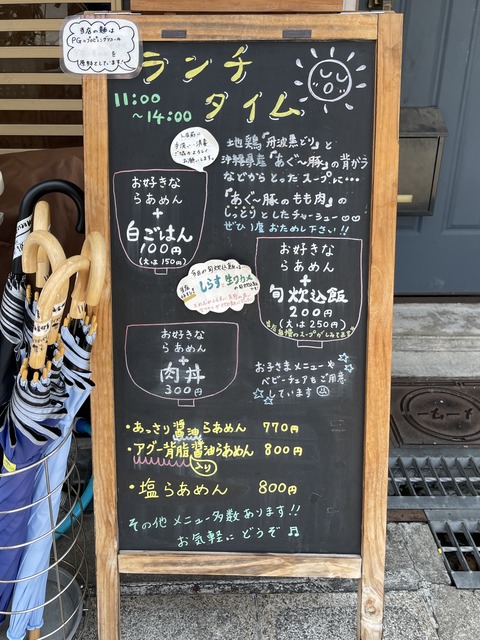 当店の麺は
を
原料としています
ランチ
タイム
11:00
~14:00
入店前に
手洗い・消毒
ご協力よろしく
お願いします。
地鶏『丹波黒どり』と
沖縄県産『あぐ〜豚』の背ガラ
などからとったスープに…
『あぐ〜豚のもも肉』の
しっとりとしたチャーシュー
ぜひ1度お試し下さい!!
お好きな
らぁめん
+
白ごはん
100円
(大は150円)
お好きな
らぁめん
+
旬炊込飯
200円
(大は250円)
今月の旬炊込飯は
しらす、生ワカメ
お好きな
らぁめん
+
肉丼
300円
お子さまメニューや
ベビーチェアもご用意
しています
・あっさり醤油らあめん 770円
・アグー背脂醤油らあめん 800円
入り
・塩らあめん 800円
その他メニュー多数あります!!
お気軽にどうぞ♬